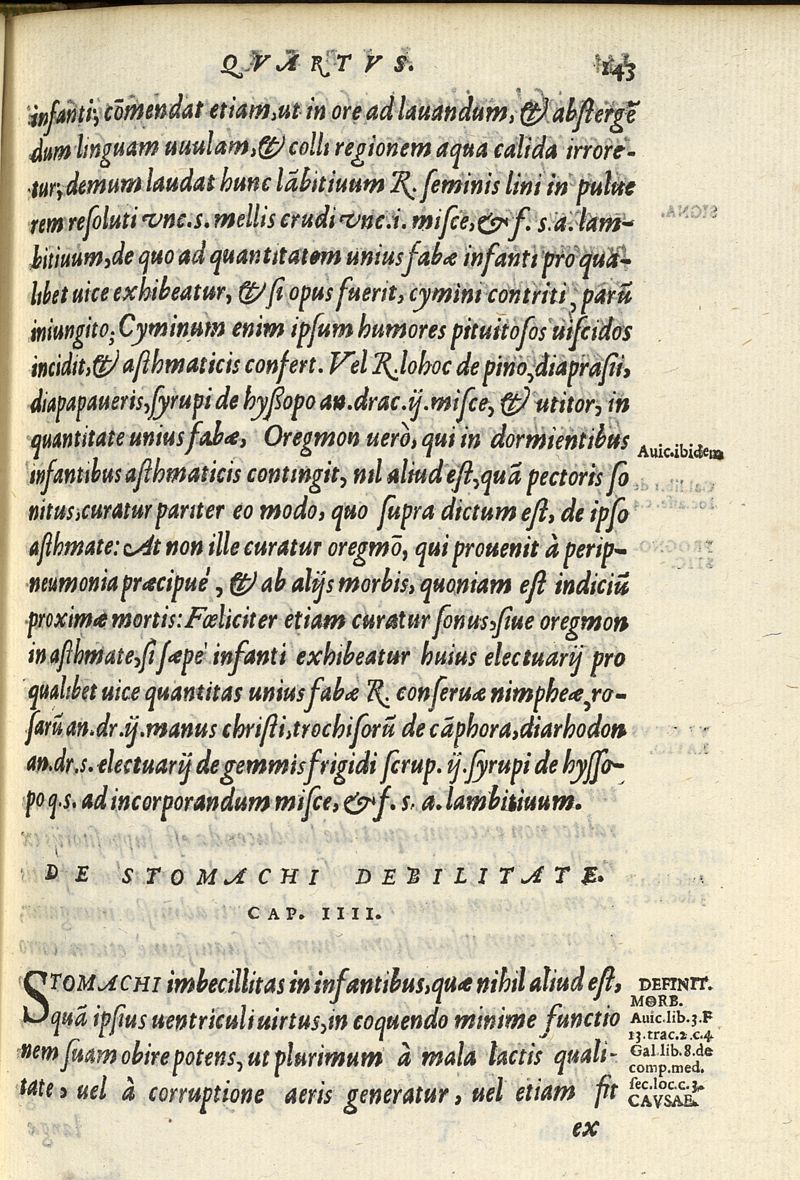 QVARTVS. 143
infanti, cōmendat etiam, ut in ore ad lauandum, & abstergē
dum linguam uuulam, & colli regionem aqua calida irrore-
tur, demum laudat hunc lābitiuum ℞. seminis lini in pulue
rem resoluti vnc.s. mellis crudi vnc.i. misce, & f. s.a. lam-
bitiuum, de quo ad quantitatem unius fabæ infanti pro qua-
libet uice exhibeatur, & si opus fuerit, cymini contriti, parū
iniungito, Cyminum enim ipsum humores pituitosos uiscidos
incidit, & asthmaticis confert. Vel ℞. lohoc de pino, diaprasii,
diapapaueris, syrupi de hyssopo an. drac.ij. misce, & utitor, in
quantitate unius fabæ, Oregmon uerò, qui in dormientibus
Auic.ibidem
infantibus asthmaticis contingit, nil aliud est, quā pectoris so
nitus, curatur pariter eo modo, quo supra dictum est, de ipso
asthmate: At non ille curatur oregmō, qui prouenit à perip-
neumonia præcipué, & ab alijs morbis, quoniam est indiciū
proximæ mortis: Fœliciter etiam curatur sonus, siue oregmon
in asthmate, si sæpè infanti exhibeatur huius electuarij pro
qualibet uice quantitas unius fabæ ℞. conseruæ nimpheæ, ro-
sarū an. dr.ij. manus christi, trochisorū de cāphora, diarhodon
an. dr.s. electuarij de gemmis frigidi scrup. ij. syrupi de hysso-
po q.s. ad incorporandum misce, & f. s. a. lambitiuum.
DE STOMACHI DEBILITATE.
CAP. IIII.
STOMACHI imbecillitas in infantibus, quæ nihil aliud est,
quā ipsius uentriculi uirtus, in coquendo minime functio
nem suam obire potens, ut plurimum à mala lactis quali-
tate, uel à corruptione aeris generatur, uel etiam fit
ex
DEFINIT.
MORB.
Auic.lib.3.F
13.trac.2.c.4.
Gal.lib.8.de
comp.med.
sec.loc.c.3.
CAVSAE.